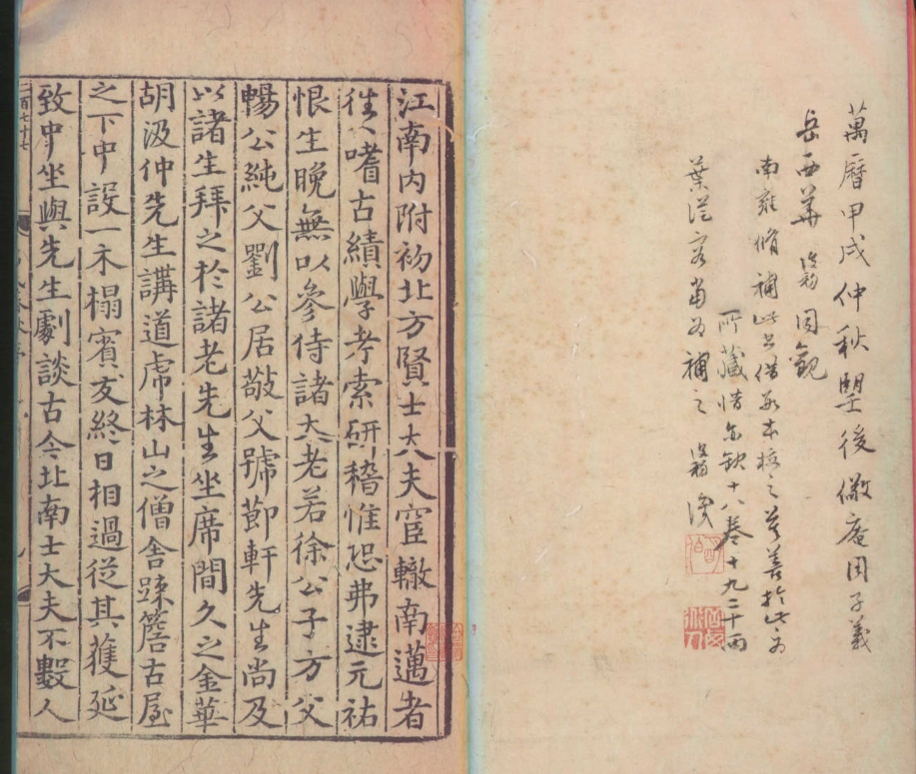 萬曆甲戌仲秋朢後儆庵周子義
岳西華同觀
南雍脩補此書借本校之差善於此
所藏惜亦缺十八卷十九二十兩
葉從容當為補之
江南内附初北方賢士大夫宦轍南邁者
徃〻嗜古績學考索研稽惟恐弗逮元祐
恨生晚無以參侍諸大老若徐公子方父
暢公純父劉公居敬父號節軒先生尚及
以諸生拜之於諸老先生坐席間久之金華
胡汲仲先生講道虎林山之僧舍踈簷古屋
之下中設一木榻賓友終日相過從其獲延
致中坐與先生劇談古今北南士大夫不數人
二百七十七